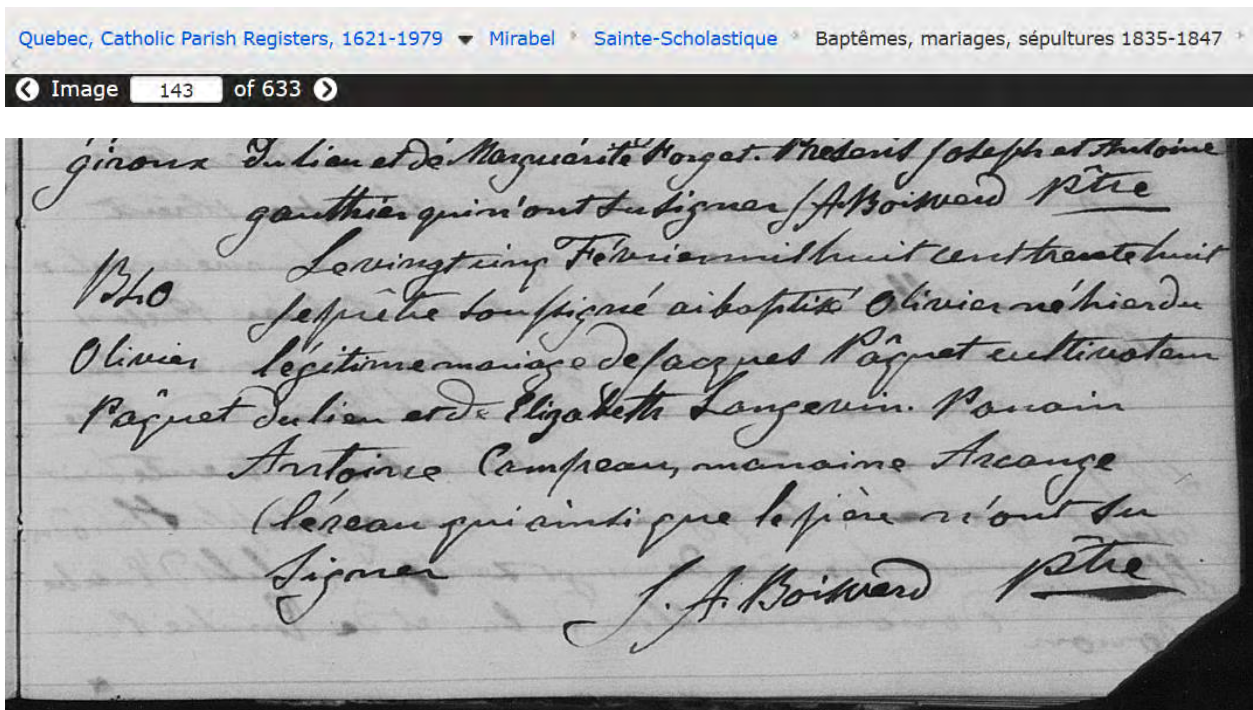 Quebec, Catholic Parish Registers, 1621-1979 Mirabel Sainte-Scholastique Baptêmes, mariages, sépultures 1835-1847
Image 143 of 633
giroux du lieu et de Marguérite Forget. Présens Joseph et Antoine
gauthier qui n'ont su signer J A Boisverd Ptre
Le vingt cinq Février mil huit cent trente huit
B40 Je prêtre soussigné ai baptisé Olivier né hier du
Olivier légitime mariage de Jacques Pâquet cultivateur
Pâquet du lieu et de Elizabeth Langevin. Parrain
Antoine Campeau, marraine Arcange
Cléreau qui ainsi que le père n'ont su
signer J. A. Boisverd Ptre